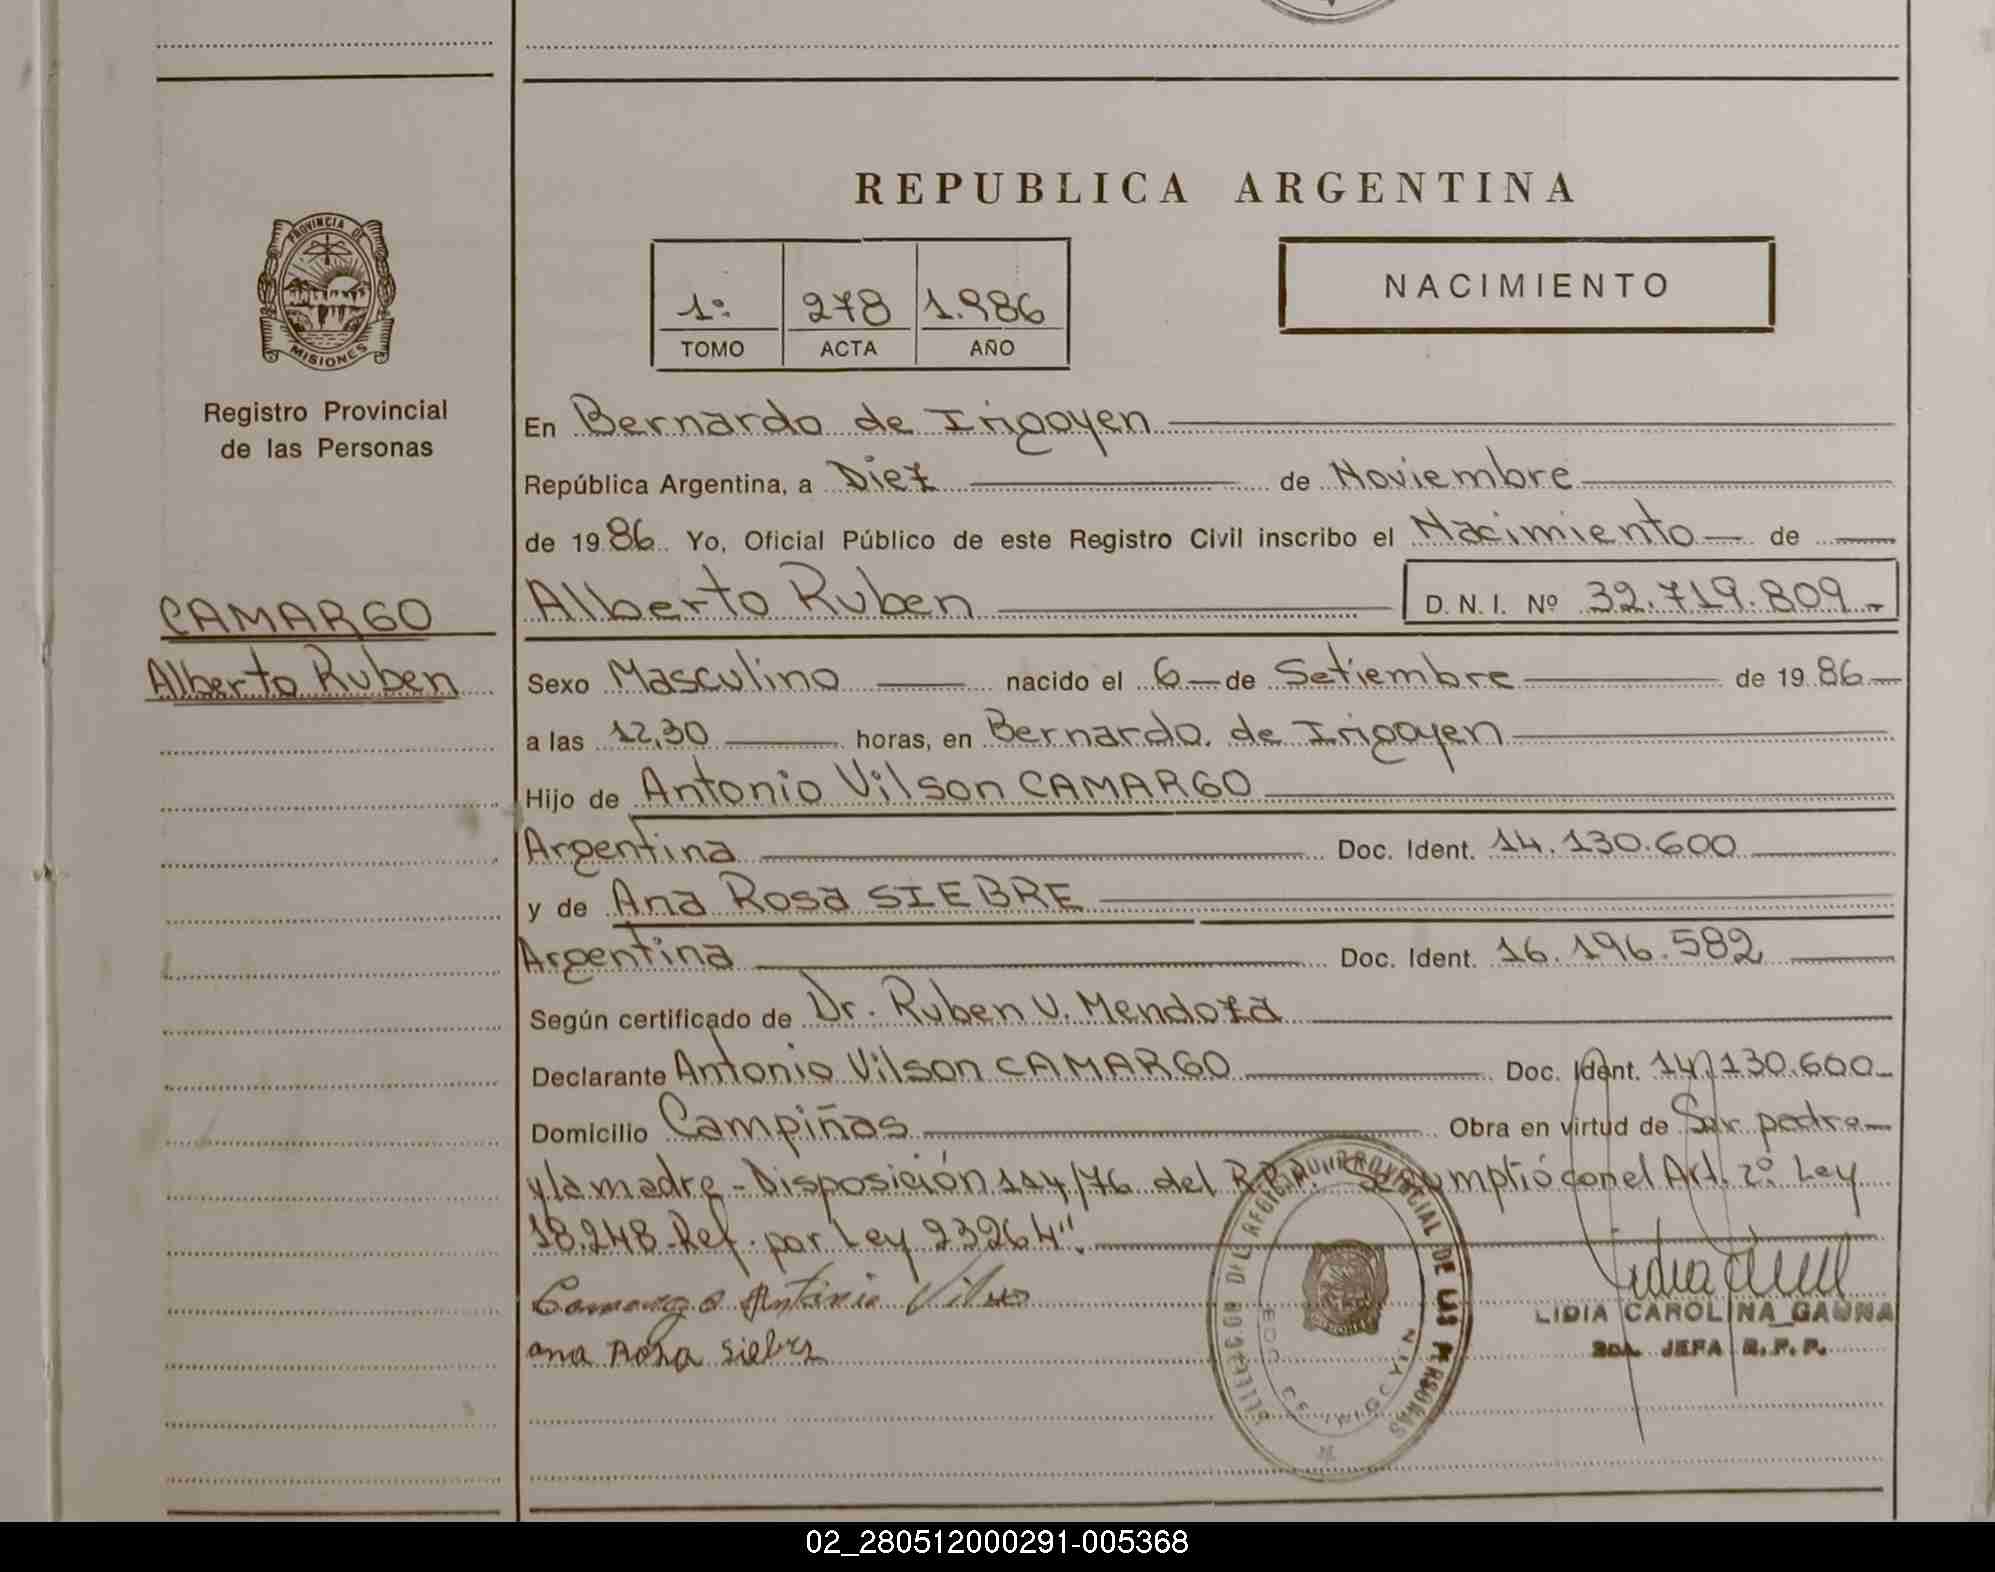 REPUBLICA ARGENTINA
PROVINCIA DE
MISIONES
Registro Provincial
de las Personas
1º 278 1.986
TOMO ACTA AÑO
NACIMIENTO
En Bernardo de Irigoyen
República Argentina, a Diez de Noviembre
de 19 86 Yo, Oficial Público de este Registro Civil inscribo el Nacimiento de
CAMARGO
Alberto Ruben
Alberto Ruben D. N. I. Nº 32.719.809
Sexo Masculino nacido el 6 de Setiembre de 19 86
a las 12,30 horas, en Bernardo de Irigoyen
Hijo de Antonio Vilson CAMARGO
Argentina Doc. Ident. 14.130.600
y de Ana Rosa SIEBRE
Argentina Doc. Ident. 16.196.582
Según certificado de Dr. Ruben V. Mendoza
Declarante Antonio Vilson CAMARGO Doc. Ident. 14.130.600
Domicilio Campiñas Obra en virtud de Ser padre
y la madre - Disposición 114/76 del R.P.P. "Se cumplió con el Art. 2º Ley
18.248 Ref. por Ley 23264".
Camargo Antonio Vilson
ana Rosa siebre
LIDIA CAROLINA GAUNA
2da. JEFA R. P. P.
02_280512000291-005368